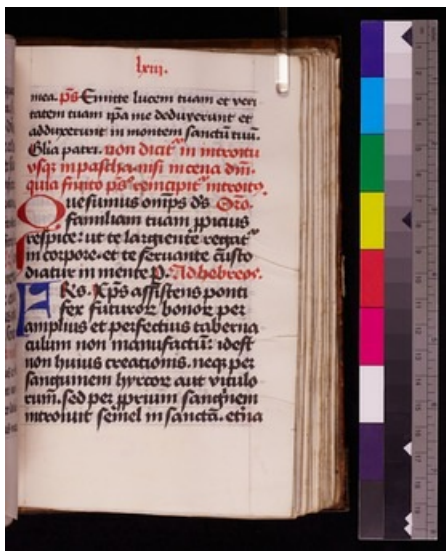 lxiii.
mea. p̄s Emitte lucem tuam et veri
tatem tuam ip̄a me deduxerunt et
adduxerunt in montem sanctū tuū.
Glia patri. non dicit᷑ in introitu
usq̄ in pascha. nisi in cena dn̄i.
quia finito ps̄ reincipit᷑ introit9.
Quesumus omp̄s ds̄ Oro.
familiam tuam ꝓpicius
respice: ut te largiente regat᷑
in corpore. et te servante custo
diatur in mente. P. Ad hebreos.
FRs. Xp̄s assistens ponti
fex futuroꝝ bonoꝝ per
amplius et perfectius taberna
culum non manufactū: idest
non huius creationis. neq̄ per
sanguinem hyrcoꝝ aut vitulo
rum. sed per ꝓprium sanguinem
introivit semel in sancta. etna